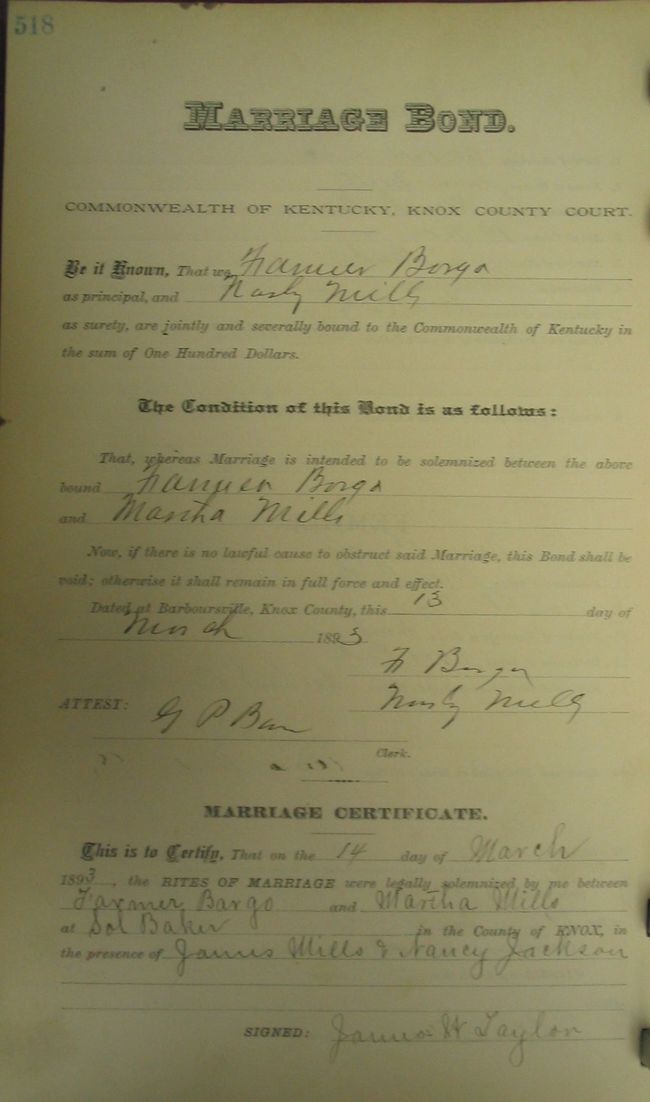 518
MARRIAGE BOND.
COMMONWEALTH OF KENTUCKY, KNOX COUNTY COURT.
Be it Known, That we Farmer Borgo
as principal, and Nasby Mills
as surety, are jointly and severally bound to the Commonwealth of Kentucky in
the sum of One Hundred Dollars.
The Condition of this Bond is as follows:
That, whereas Marriage is intended to be solemnized between the above
bound Farmer Borgo
and Martha Mills
Now, if there is no lawful cause to obstruct said Marriage, this Bond shall be
void; otherwise it shall remain in full force and effect.
Dated at Barboursville, Knox County, this 13 day of
March 1893
F Borgo
ATTEST: Mills
G P
Clerk.
MARRIAGE CERTIFICATE.
This is to Certify, That on the 14 day of March
1893, the RITES OF MARRIAGE were legally solemnized by me between
Farmer Bargo and Martha Mills
at Sol Baker in the County of KNOX, in
the presence of James Mills & Nancy Jackson
SIGNED: James H Taylor